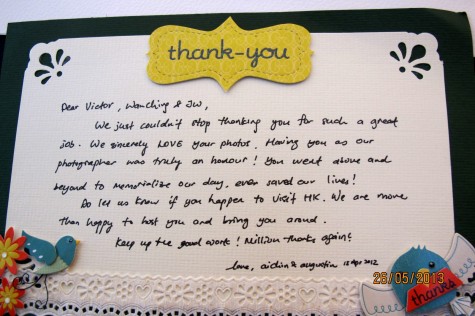 thank-you
Dear Victor, Wanching & JW,
We just couldn't stop thanking you for such a great
job. We sincerely LOVE your photos. Having you as our
photographer was truly an honour! You went above and
beyond to memorialize our day, even saved our lives!
Do let us know if you happen to visit HK. We are more
than happy to host you and bring you around.
Keep up the good work! Million thanks again!
love, & augustin 12 Apr 2012
26/05/2013
thanks